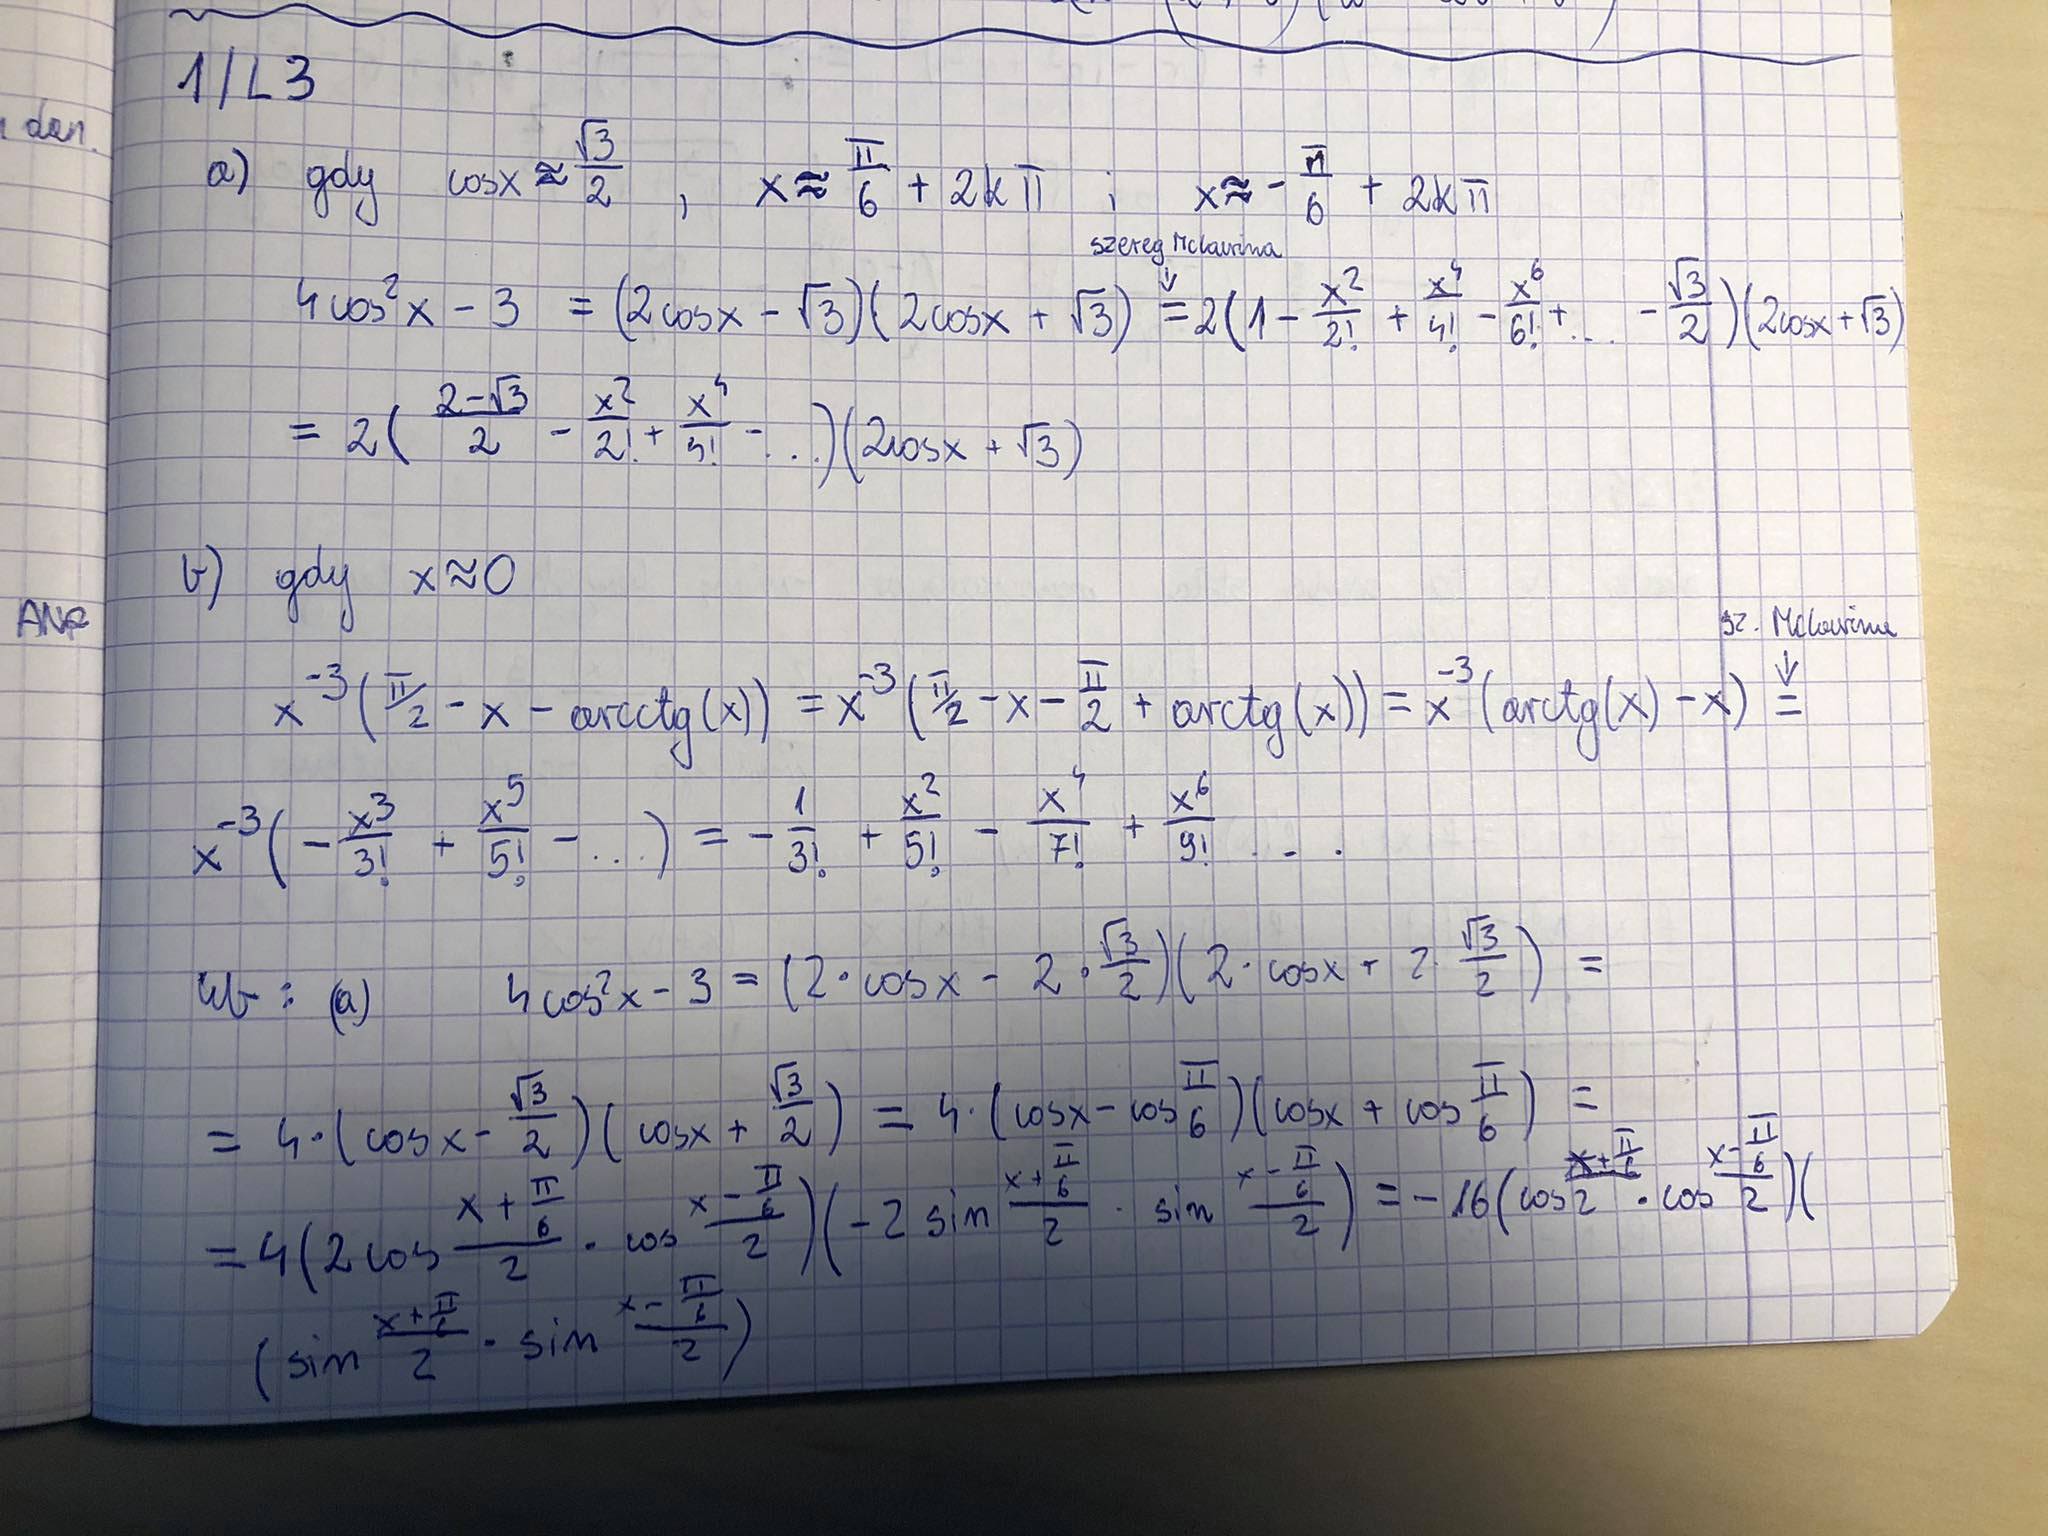 1/L3
n dan.
a) gdy cosx ≈ √3/2 , x ≈ π/6 + 2kπ i x ≈ -π/6 + 2kπ
szereg Mclaurina
↓
4cos²x - 3 = (2cosx - √3)(2cosx + √3) = 2(1 - x²/2! + x⁴/4! - x⁶/6! + ... - √3/2)(2cosx + √3)
= 2( (2-√3)/2 - x²/2! + x⁴/4! - ...)(2cosx + √3)
b) gdy x ≈ 0
sz. Mclaurina
↓
x⁻³(π/2 - x - arcctg(x)) = x⁻³(π/2 - x - π/2 + arctg(x)) = x⁻³(arctg(x) - x) =
x⁻³(- x³/3! + x⁵/5! - ...) = - 1/3! + x²/5! - x⁴/7! + x⁶/9! ...
lub : (a) 4cos²x - 3 = (2·cosx - 2·√3/2)(2·cosx + 2·√3/2) =
= 4·(cosx - √3/2)(cosx + √3/2) = 4·(cosx - cos π/6)(cosx + cos π/6) =
= 4(2cos (x+π/6)/2 · cos (x-π/6)/2)(-2 sin (x+π/6)/2 · sin (x-π/6)/2) = -16(cos (x+π/6)/2 · cos (x-π/6)/2)(
(sin (x+π/6)/2 · sin (x-π/6)/2)